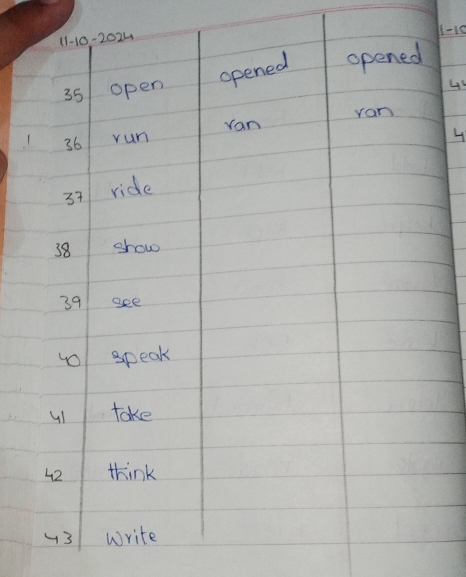 11-10-2024
35 open opened opened
36 run ran ran
37 ride
38 show
39 see
40 speak
41 take
42 think
43 write